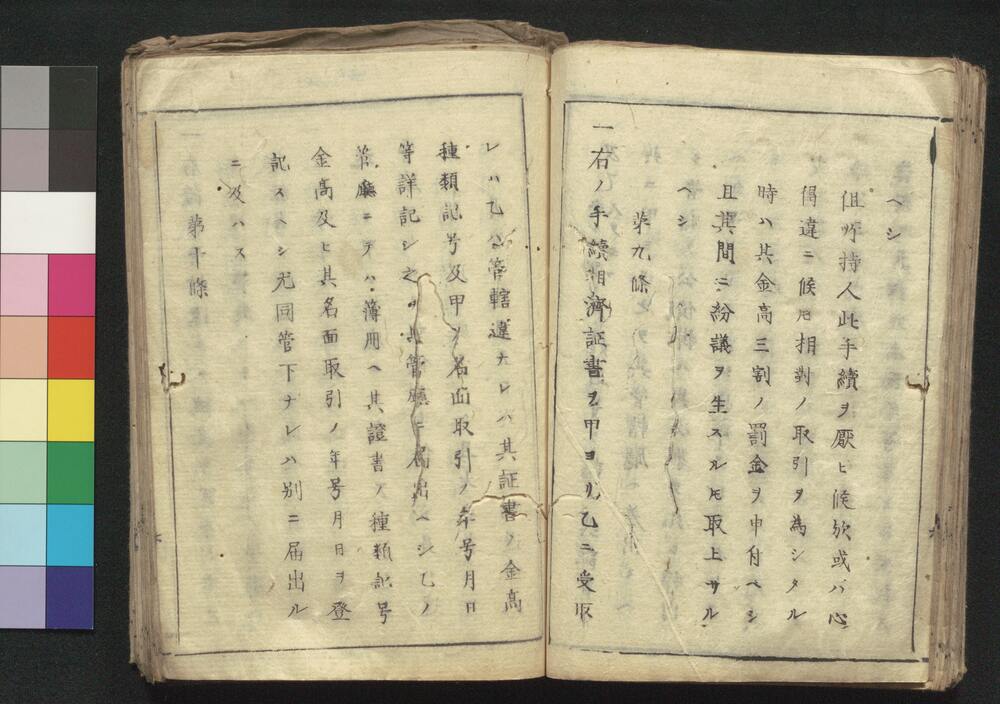 ヘシ
但所持人此手續ヲ厭ヒ候欤或ハ心
得違ニ候ヒ相對ノ取引ヲ為シタル
時ハ其金高三割ノ罰金ヲ申付ヘシ
且其間ニ紛議ヲ生スルヒ取上サル
ヘシ
第九條
一右ノ手續相濟証書ヲ甲ヨリ乙ニ受取
レハ乙ハ管轄違ナレハ其証書ノ金高
種類記号及甲ノ名面取引ノ年号月日
等詳記シ之ヲ其管廳ニ届出ヘシ乙ノ
管廳ニテハ薄冊ヘ其證書ノ種類記号
金高及ヒ其名面取引ノ年号月日ヲ登
記スヘシ尤同管下ナレハ別ニ届出ル
ニ及ハス
第十條